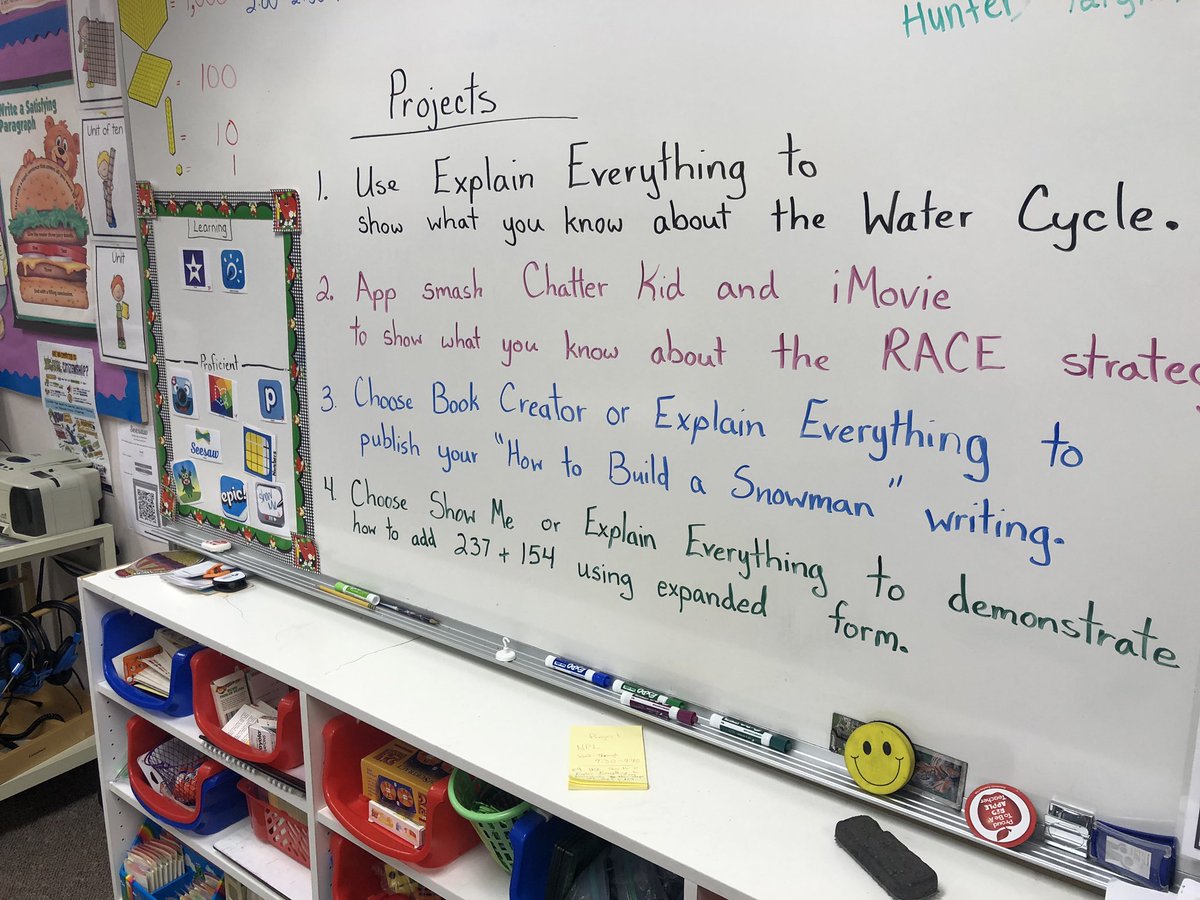 = 1,000
Hunter
= 100
= 10
1
Write a Satisfying
Paragraph
Unit of ten
Unit
Projects
1. Use Explain Everything to
show what you know about the Water Cycle.
2. App smash Chatter Kid and iMovie
to show what you know about the RACE strateg
3. Choose Book Creator or Explain Everything to
publish your "How to Build a Snowman" writing.
4. Choose Show Me or Explain Everything to demonstrate
how to add 237 + 154 using expanded form.
Learning
Proficient
P
Seesaw
epic!
Seesaw
EXPO
Proud
To Be An
APPLE
Teacher